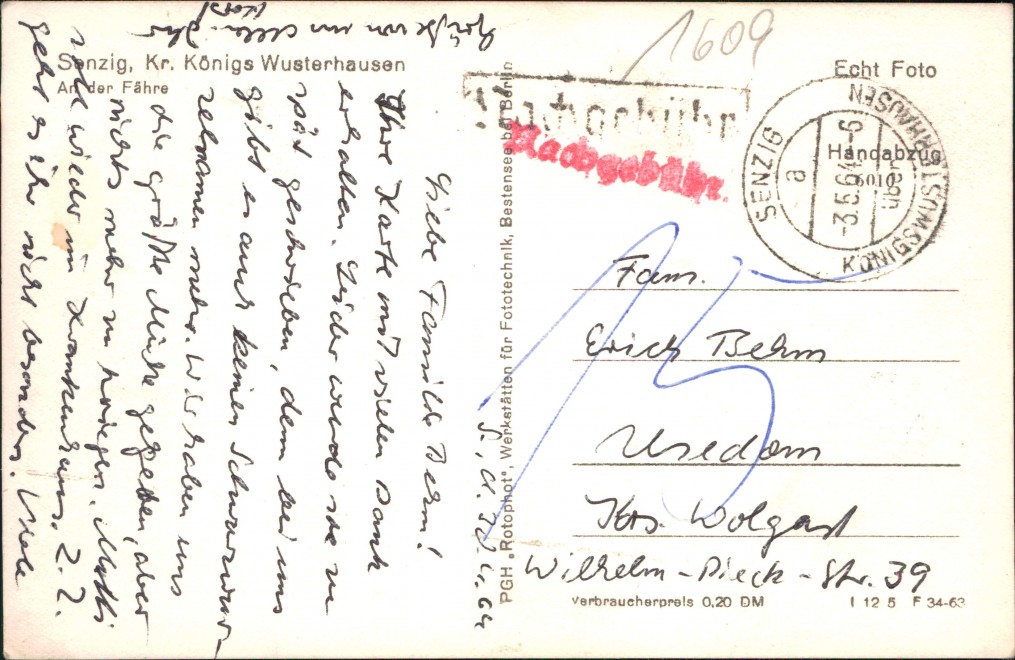 Senzig, Kr. Königs Wusterhausen
An der Fähre
S., d. 30.4.64
Liebe Familie Behm!
Ihre Karte mit vielen Dank
erhalten. Leider wurde sie zu
spät geschrieben, denn bei uns
gibt es auch keinen Schwarzwur-
zelsamen mehr. Wir haben uns
die größte Mühe gegeben, aber
nichts mehr zu kriegen. Mutti
wieder im Krankenhaus. Z. Z.
geht es ihr nicht besonders. Viele
Grüße von uns allen Ihr
PGH „Rotophot“, Werkstätten für Fototechnik, Bestensee bei Berlin
1609
Echt Foto
Nachgebühr
Nachgebühr.
SENZIG
a
-3.5.64-6
KÖNIGSWUSTERHAUSEN
über
Handabzug
15
Fam.
Erich Behm
Usedom
Krs. Wolgast
Wilhelm-Pieck-Str. 39
Verbraucherpreis 0,20 DM
I 12 5 F 34-63